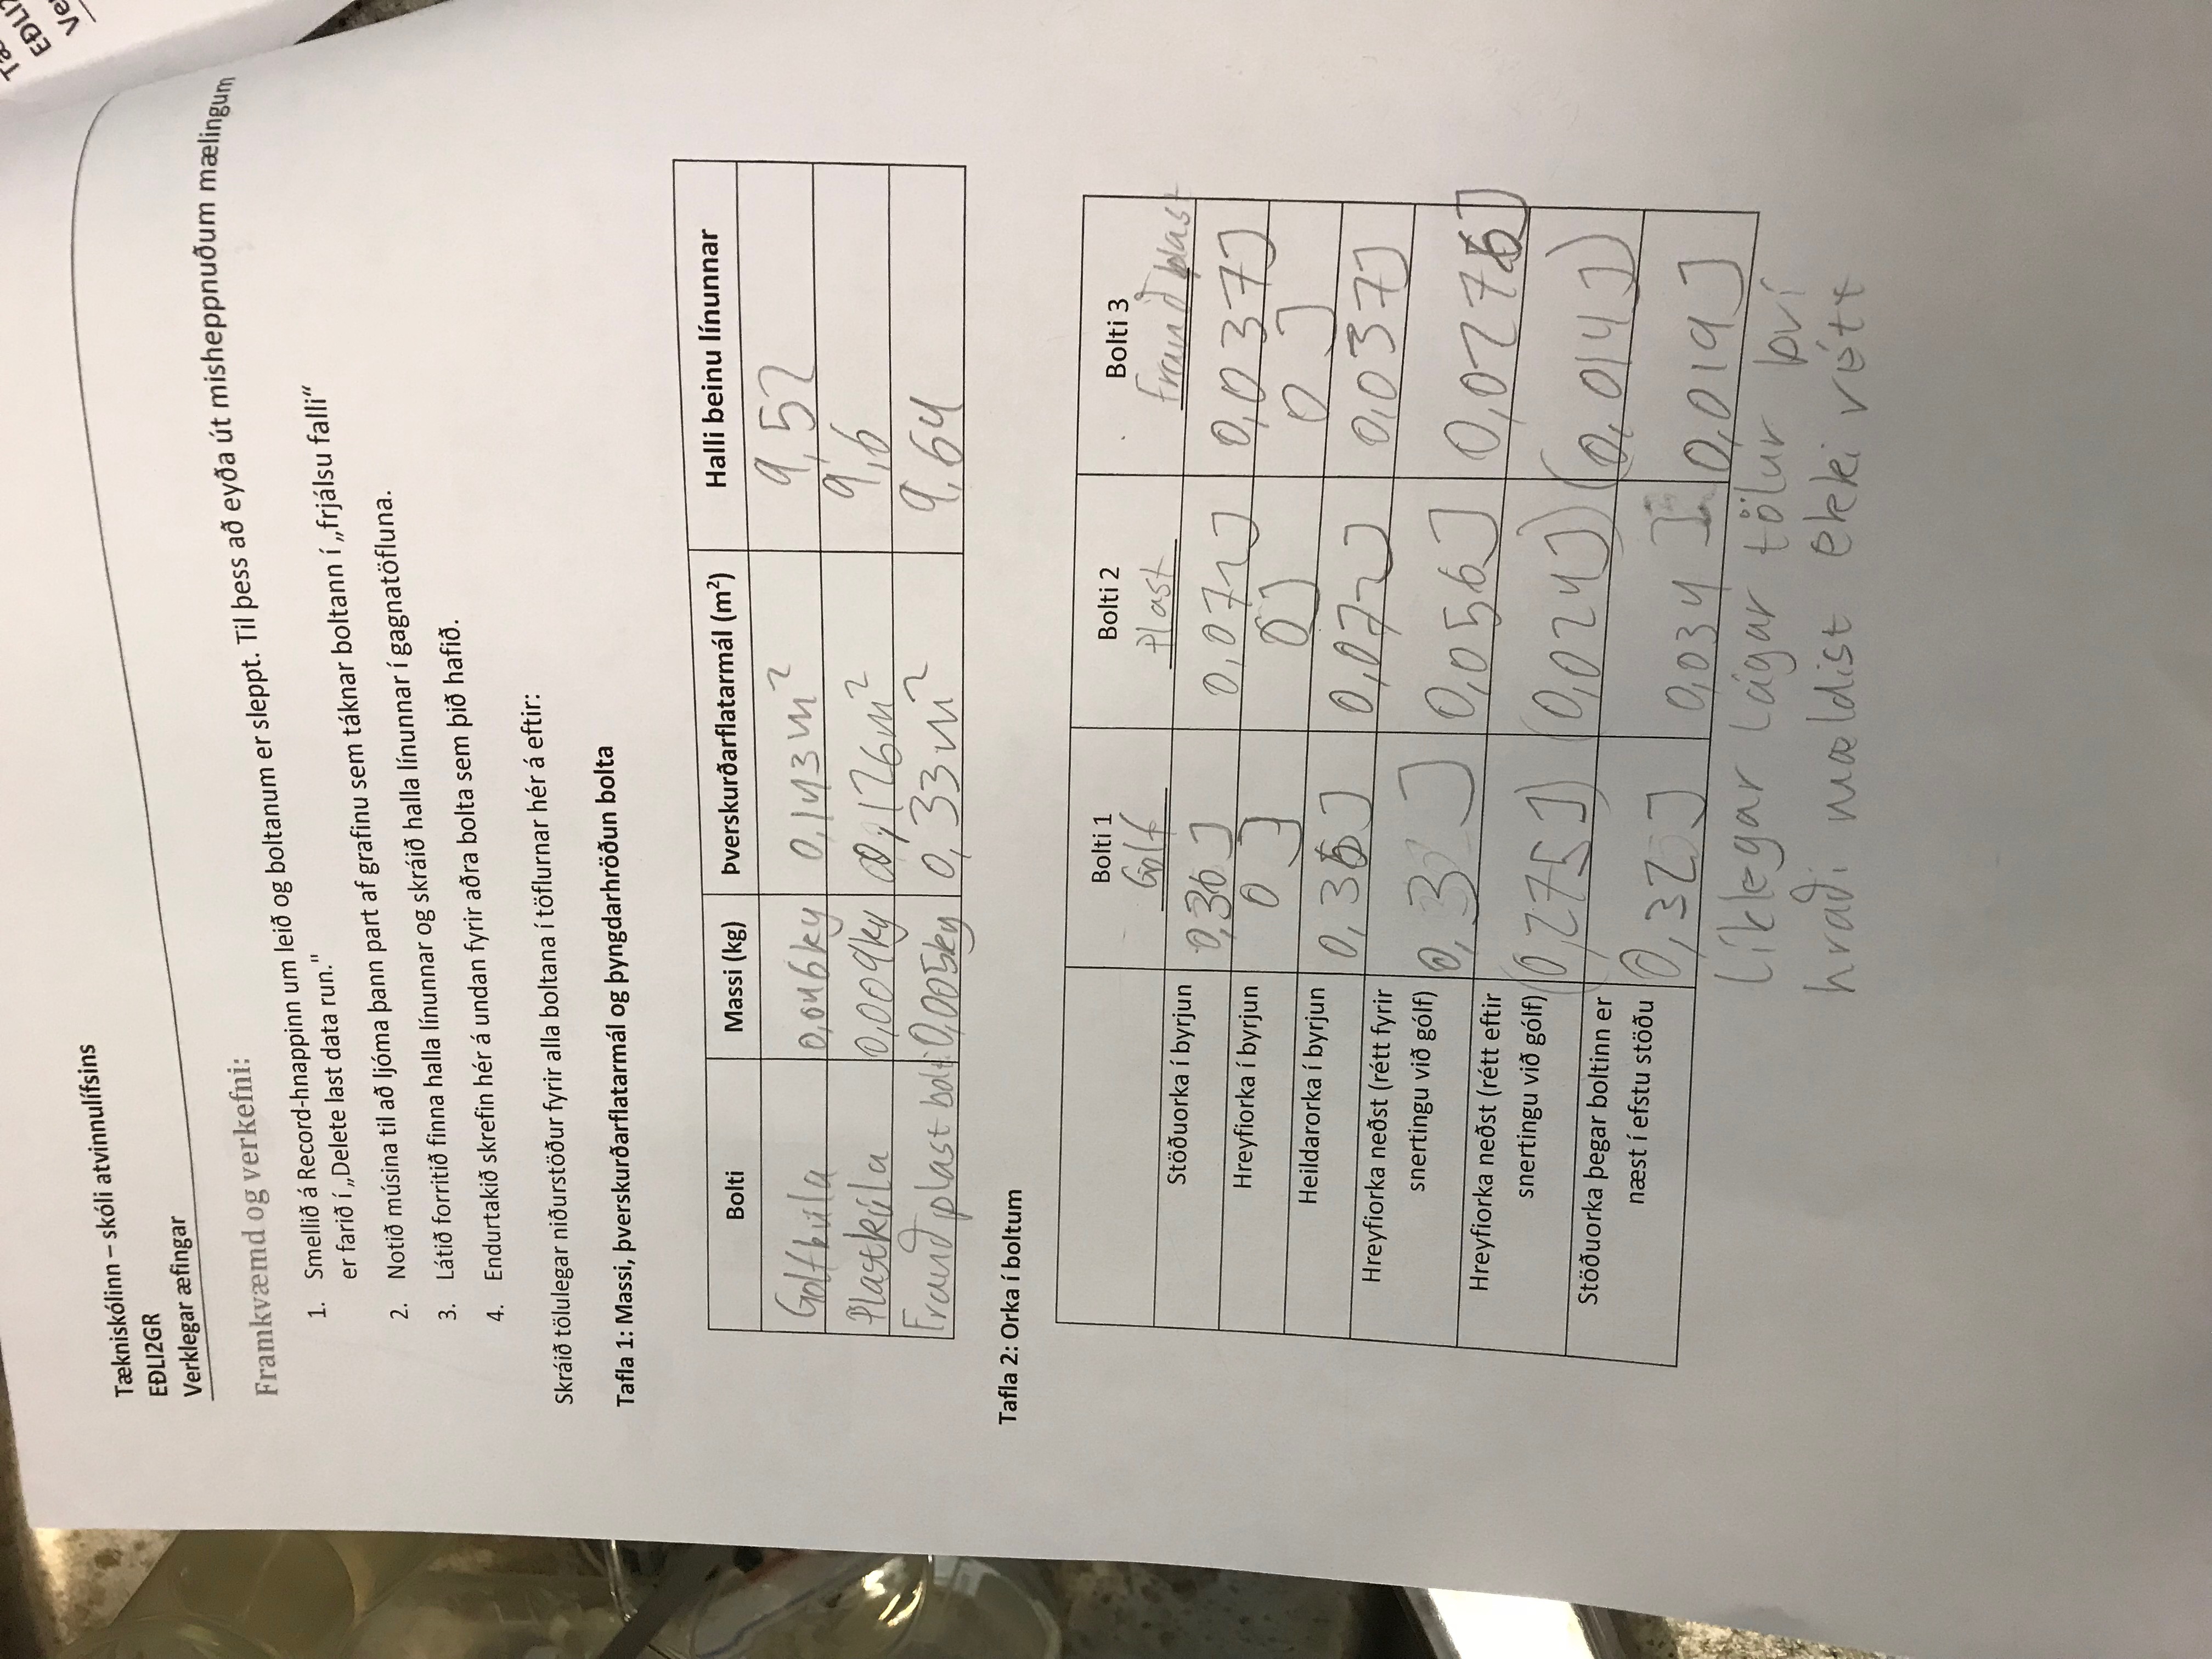 Tækniskólinn – skóli atvinnulífsins
EÐLI2GR
Verklegar æfingar
Framkvæmd og verkefni:
1. Smellið á Record-hnappinn um leið og boltanum er sleppt. Til þess að eyða út misheppnuðum mælingum
er farið í „Delete last data run."
2. Notið músina til að ljóma þann part af grafinu sem táknar boltann í „frjálsu falli“
3. Látið forritið finna halla línunnar og skráið halla línunnar í gagnatöfluna.
4. Endurtakið skrefin hér á undan fyrir aðra bolta sem þið hafið.
Skráið tölulegar niðurstöður fyrir alla boltana í töflurnar hér á eftir:
Tafla 1: Massi, þverskurðarflatarmál og þyngdarhröðun bolta
Bolti Massi (kg) Þverskurðarflatarmál (m²) Halli beinu línunnar
Golfkúla 0,046kg 0,143m² 9,52
Plastkúla 0,009kg 0,126m² 9,6
Frauð plast bolti 0,005kg 0,33m² 9,64
Tafla 2: Orka í boltum
Bolti 1 Bolti 2 Bolti 3
Golf Plast Frauð plast
Stöðuorka í byrjun 0,36 J 0,072J 0,037J
Hreyfiorka í byrjun 0 J 0J 0 J
Heildarorka í byrjun 0,36J 0,072J 0,037J
Hreyfiorka neðst (rétt fyrir
snertingu við gólf) 0,3 J 0,056J 0,0276J
Hreyfiorka neðst (rétt eftir
snertingu við gólf) (0,275J) (0,024J) (0,014J)
Stöðuorka þegar boltinn er
næst í efstu stöðu 0,32 J 0,034 J 0,019J
líklegar lágar tölur því
hraði mældist ekki rétt
Tæ
EÐLI2
Ve